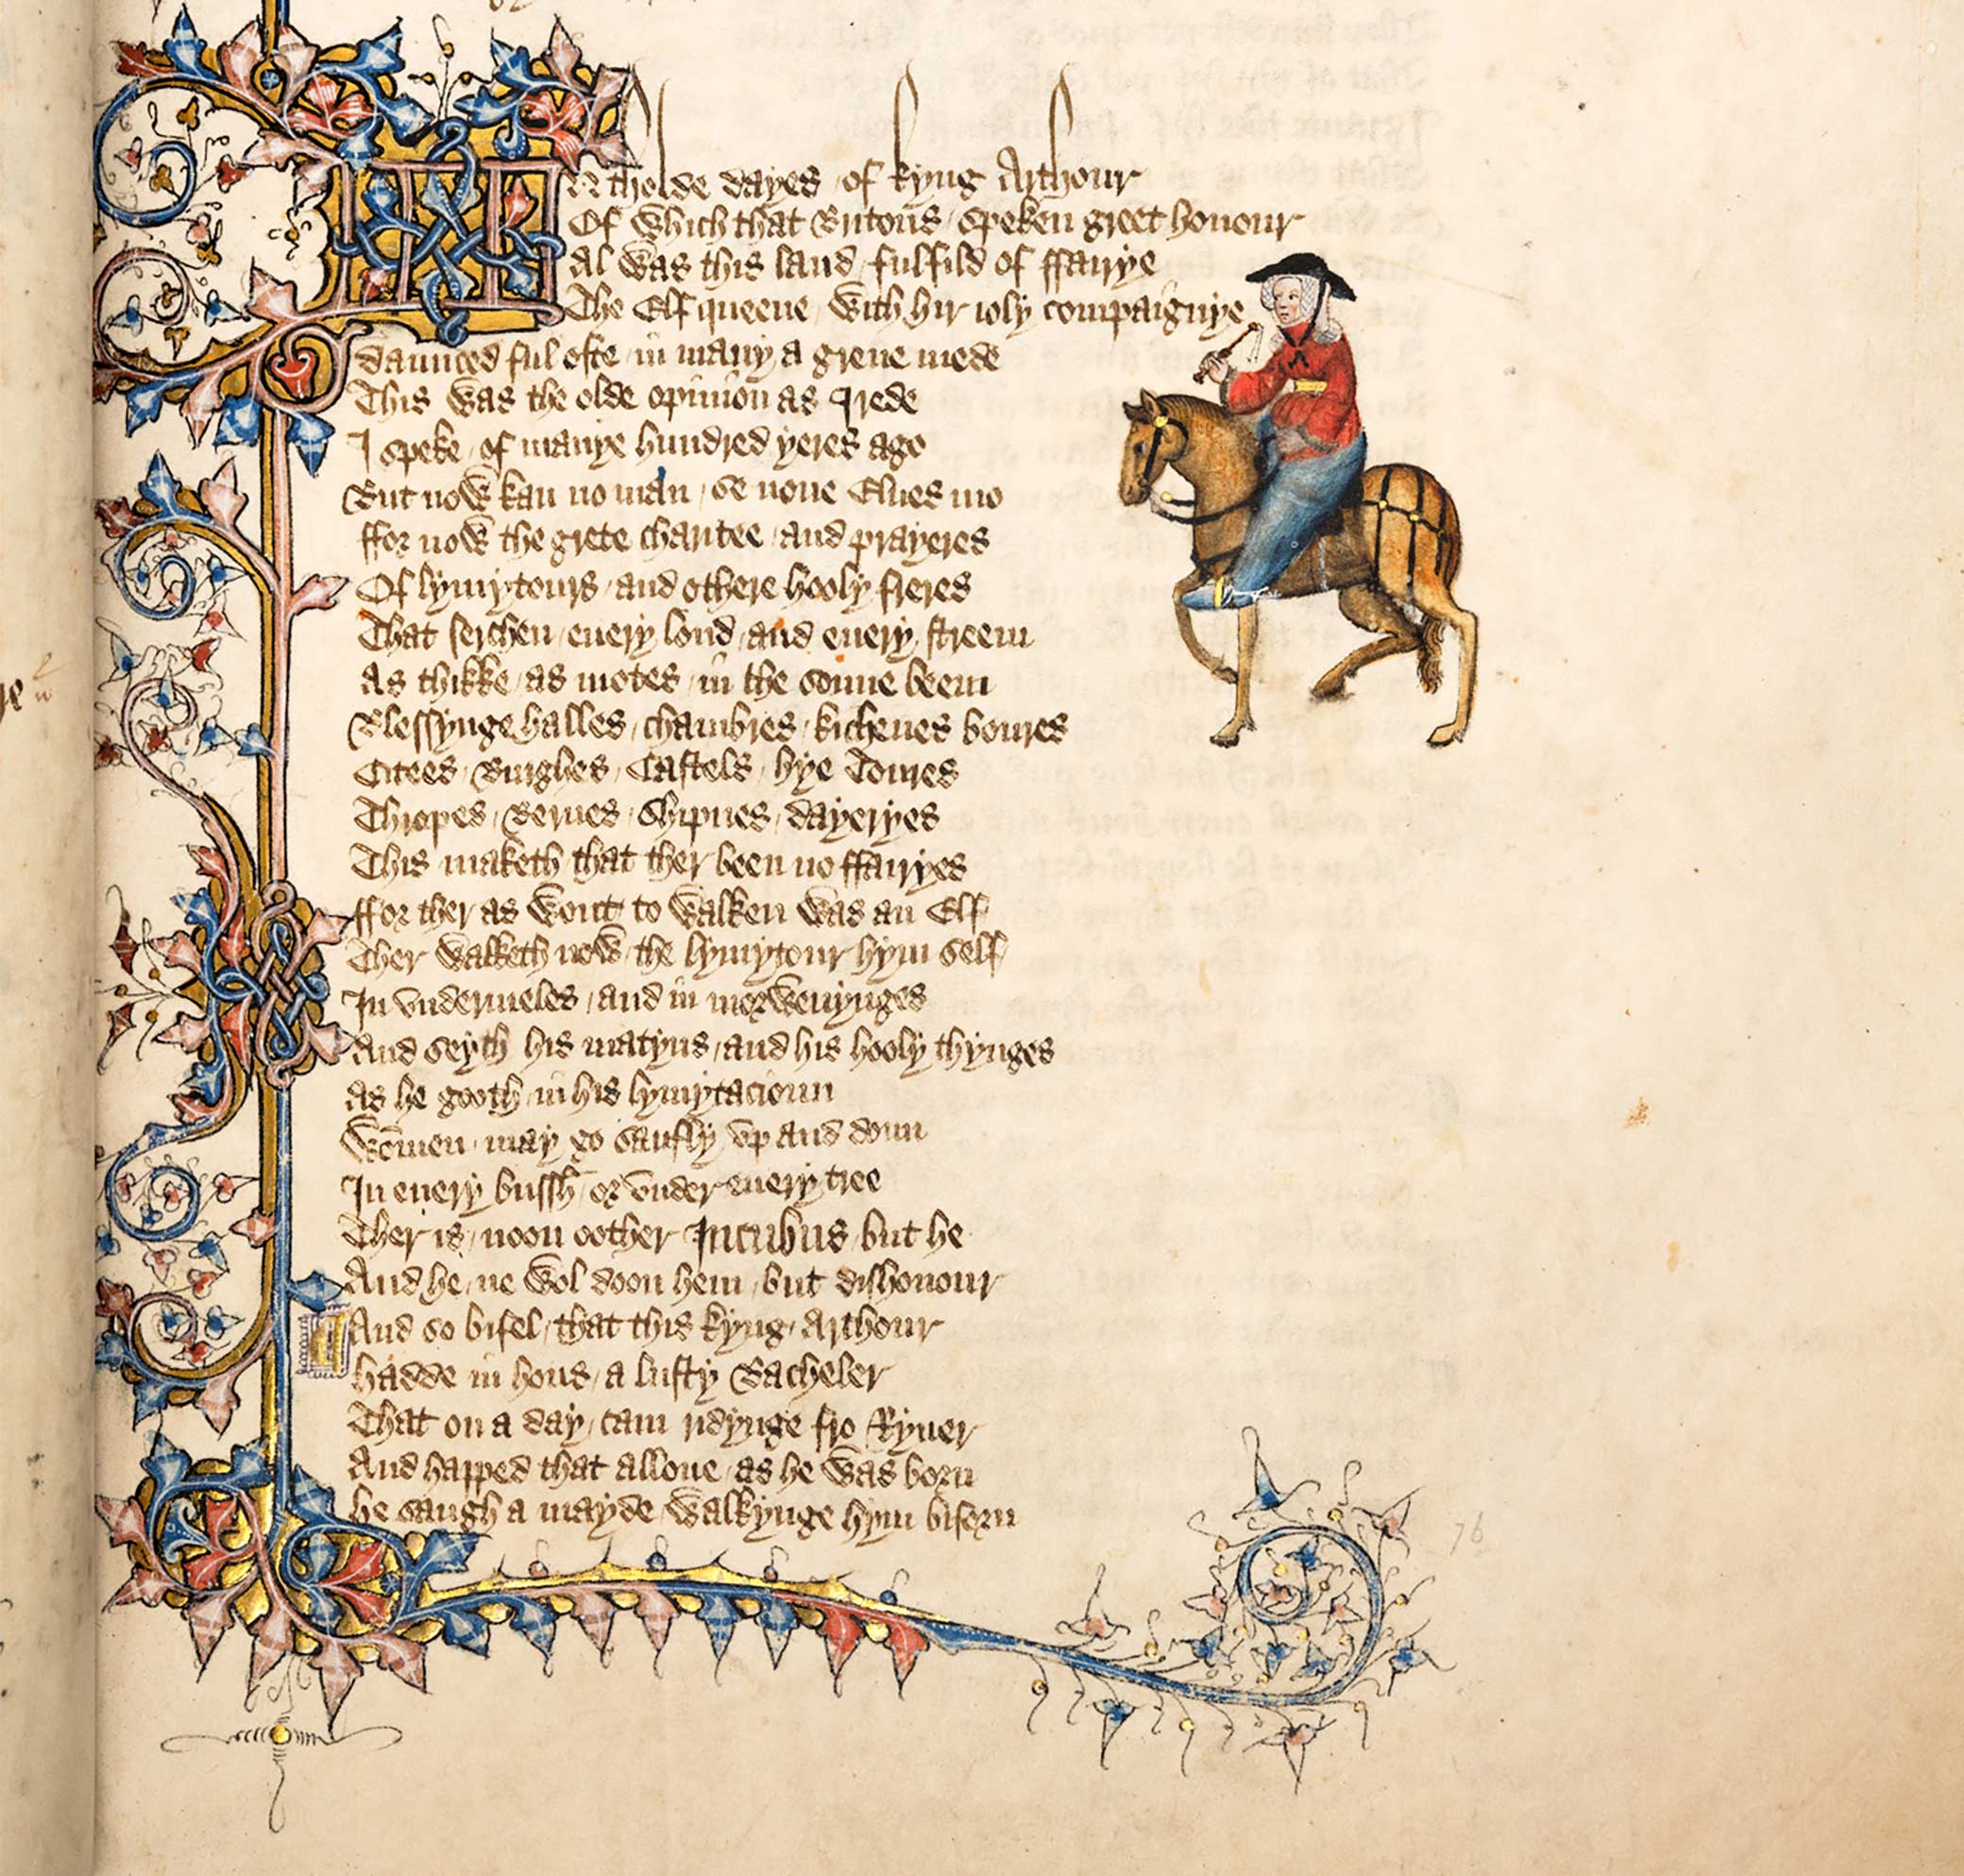 IN tholde dayes / of kyng Arthour
Of which that Britons / speken greet honour
Al was this land / fulfild of ffairye
The Elf queene / with hir ioly compaignye
Daunced ful ofte / in many a grene mede
This was the olde opinion as I rede
I speke / of manye hundred yeres ago
But now kan no man / se none Elues mo
ffor now the grete charitee / and prayeres
Of lymytours / and othere hooly freres
That serchen / euery lond / and euery streem
As thikke / as motes / in the sonne beem
Blessynge halles / chambres / kichenes boures
Citees / Burghes / Castels / hye Toures
Thropes / Bernes / Shipnes / dayeryes
This maketh that ther been no ffairyes
ffor ther as wont to walken was an Elf
Ther walketh now / the lymytour hym self
In vndermeles / and in morwenynges
And seyth his matyns / and his hooly thynges
As he gooth / in his lymytacioun
Wommen / may go saufly vp and doun
In euery bussh / or vnder euery tree
Ther is / noon oother Incubus / but he
And he / ne wol doon hem / but dishonour
And so bifel / that this kyng / Arthour
Hadde in hous / a lusty Bacheler
That on a day / cam ridynge fro Ryuer
And happed that allone / as he was born
He saugh a mayde / walkynge hym biforn
76